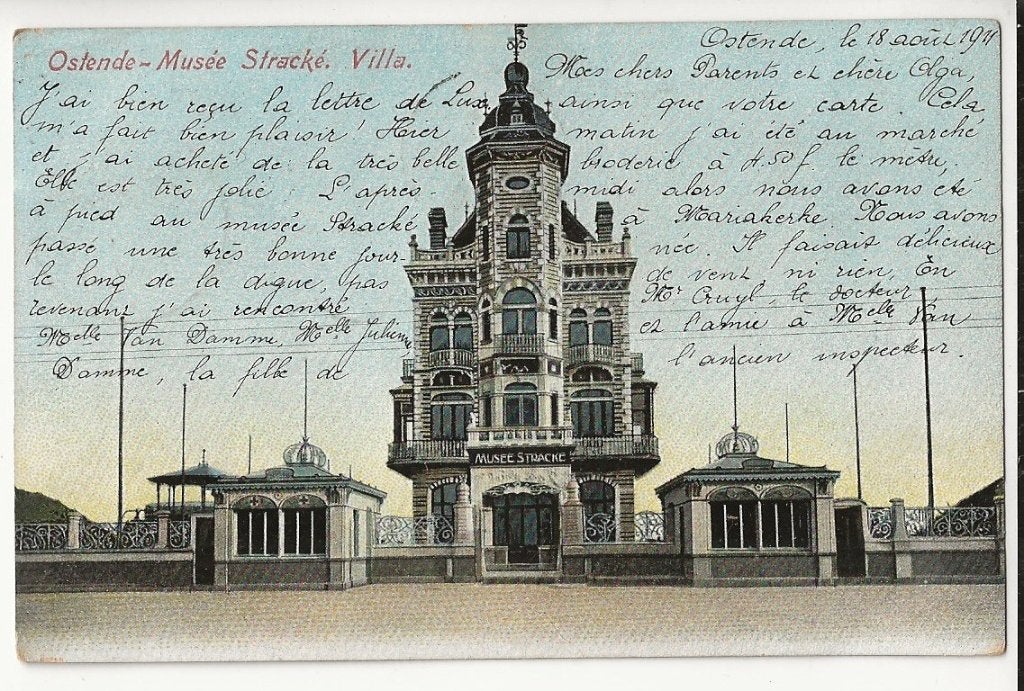 Ostende, le 18 août 1911
Ostende - Musée Stracké. Villa.
Mes chers Parents et chère Olga,
J'ai bien reçu la lettre de Luxe, ainsi que votre carte. Cela
m'a fait bien plaisir! Hier matin j'ai été au marché
et j'ai acheté de la très belle broderie à 4.50 f le mètre.
Elle est très jolie. L'après-midi alors nous avons été
à pied au musée Stracké à Mariakerke. Nous avons
passé une très bonne journée. Il faisait délicieux
le long de la digue, pas de vent ni rien. En
revenant j'ai rencontré Mr Cruyl, le docteur
Melle Van Damme, Melle Julienne et l'amie à Melle Van
Damme, la fille de l'ancien inspecteur.
MUSÉE STRACKÉ